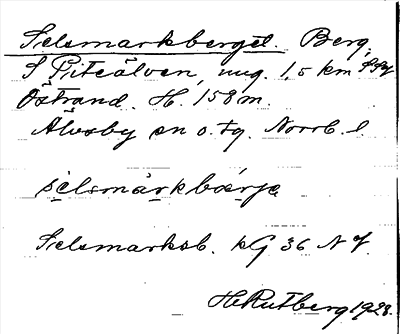 Selsmarkberget. Berg.
S Piteälven, ung. 1,5 km SSV
Östrand. H. 158 m.
Älvsby sn o. tg. Norrb. l
selsmarkbærjə
Selsmarksb. kG 36 N Y.
H Rutberg 1928.